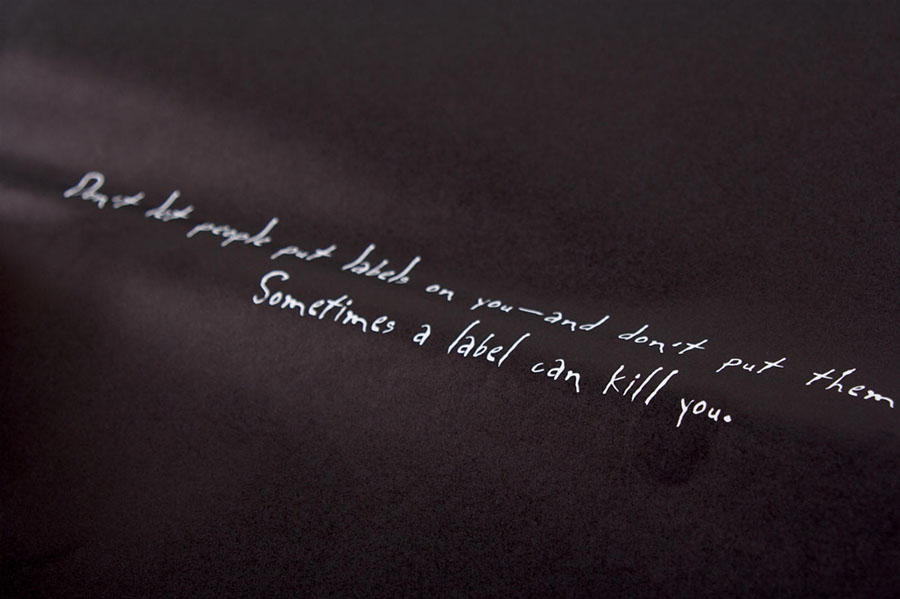 Don't let people put labels on you—and don't put them
Sometimes a label can kill you.